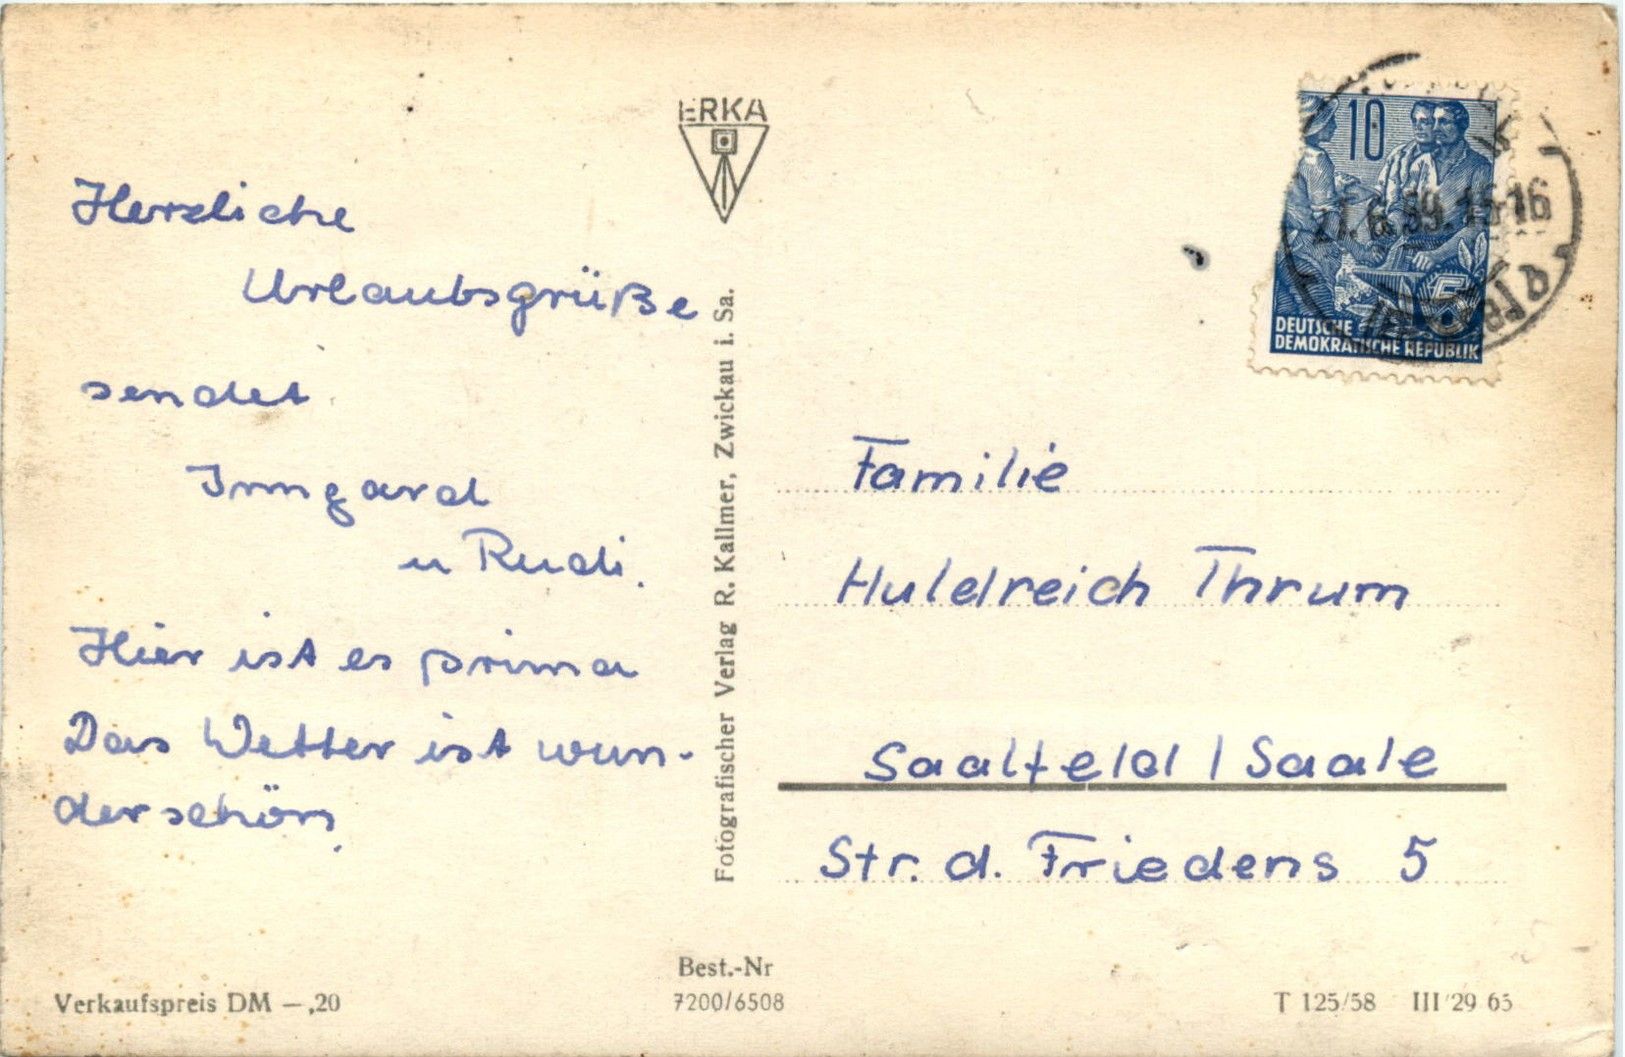 ERKA
Herzliche
Urlaubsgrüße
sendet
Irmgard
u Rudi.
Hier ist es prima
Das Wetter ist wun-
derschön.
Fotografischer Verlag R. Kallmer, Zwickau i. Sa.
10
DEUTSCHE
DEMOKRATISCHE REPUBLIK
6.59.15-16
Familie
Huldreich Thrum
Saalfeld / Saale
Str. d. Friedens 5
Verkaufspreis DM –,20
Best.-Nr
7200/6508
T 125/58 III 29 65